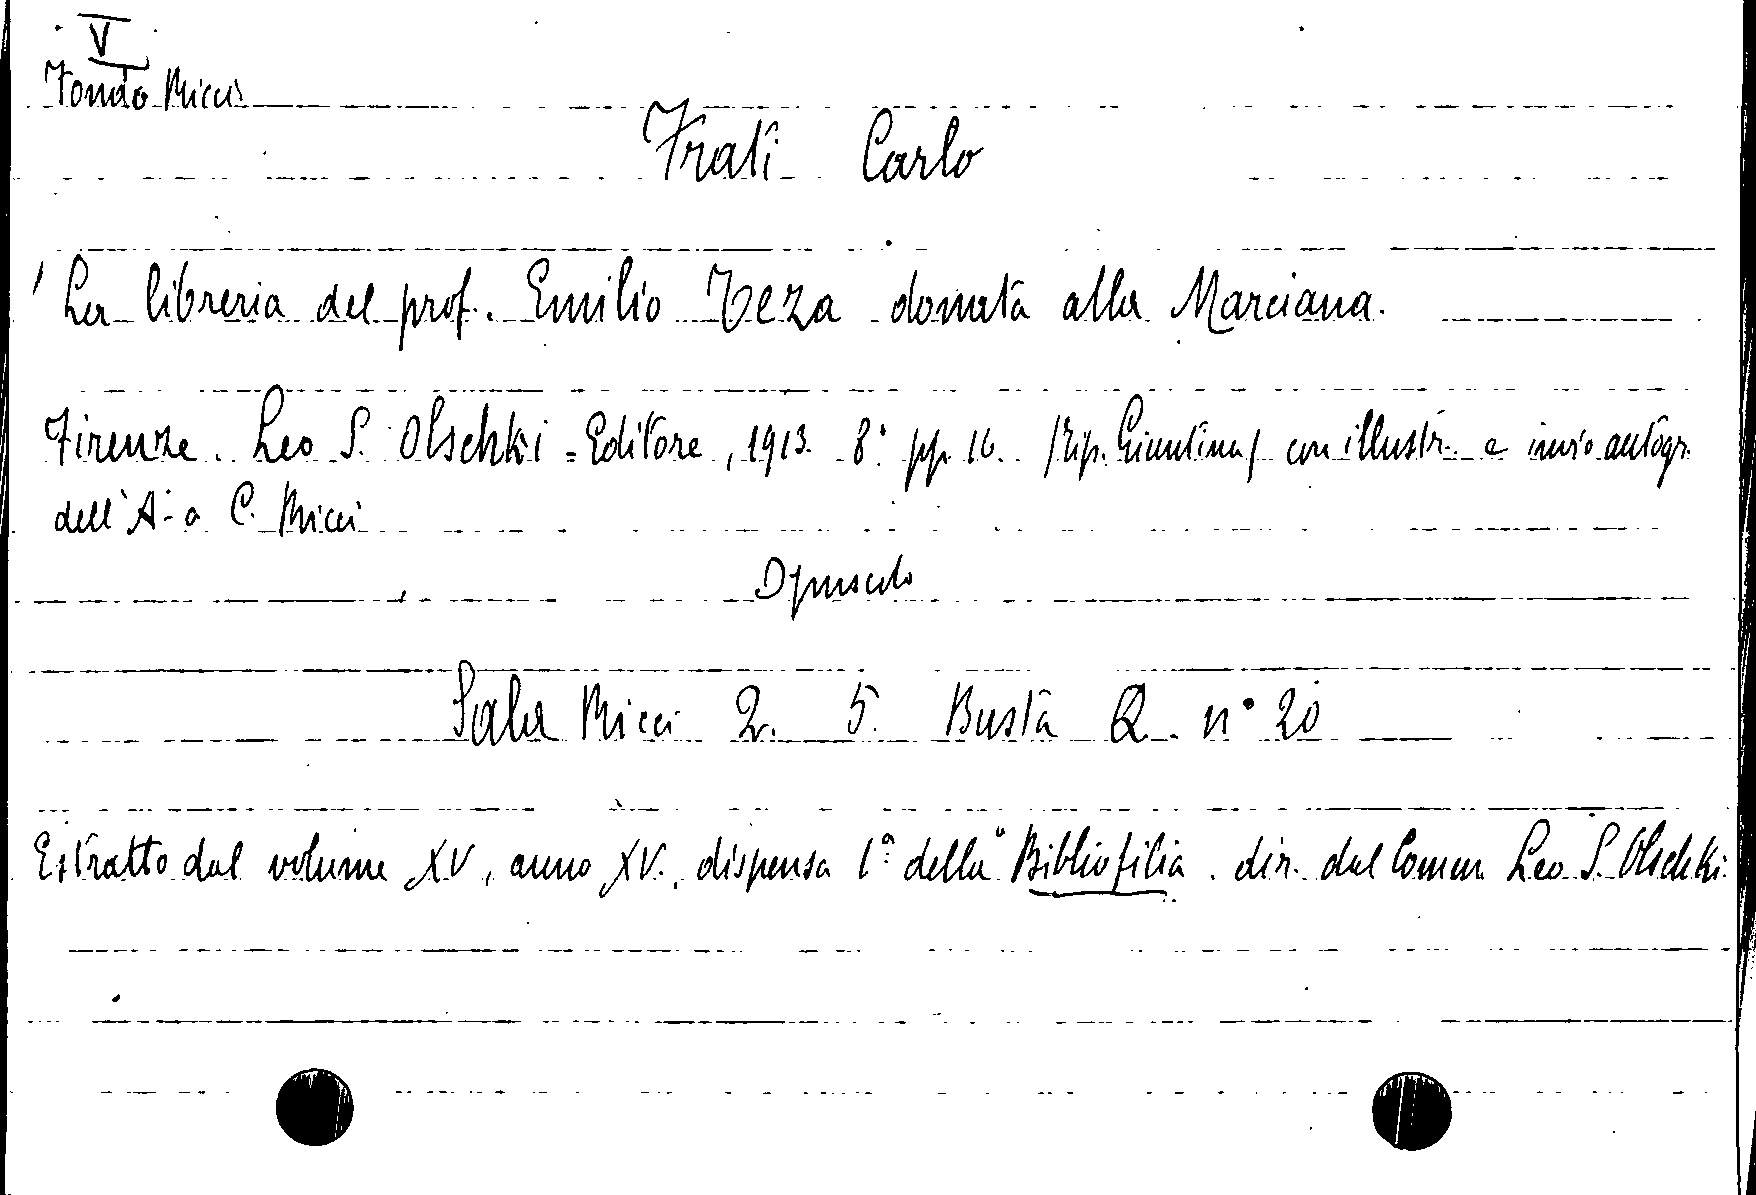 V
Fondo Ricci
Frati Carlo
La libreria del prof. Emilio Teza donata alla Marciana.
Firenze. Leo S. Olschki - Editore, 1913. 8° pp. 16. /Tip. Giuntina/ con illustr. e invio autogr.
dell'A. a C. Ricci
Opuscolo
Sala Ricci 2. 5. Busta Q. n° 20
Estratto dal volume XV, anno XV, dispensa 1ª della "Bibliofilia. dir. dal Comm. Leo S. Olschki.